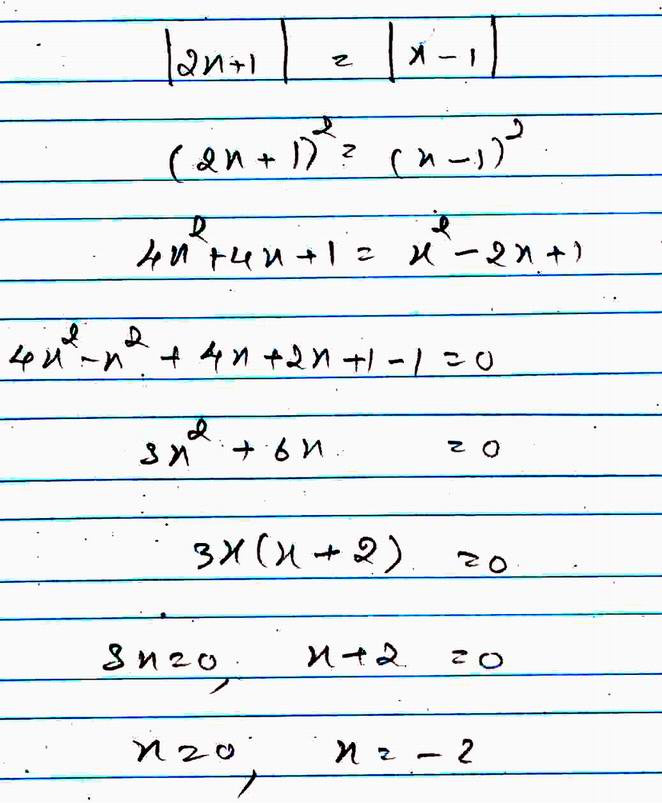 |2x+1| = |x-1|
(2x+1)² = (x-1)²
4x²+4x+1 = x²-2x+1
4x²-x²+4x+2x+1-1=0
3x²+6x =0
3x(x+2) =0
3x=0, x+2 =0
x=0, x=-2